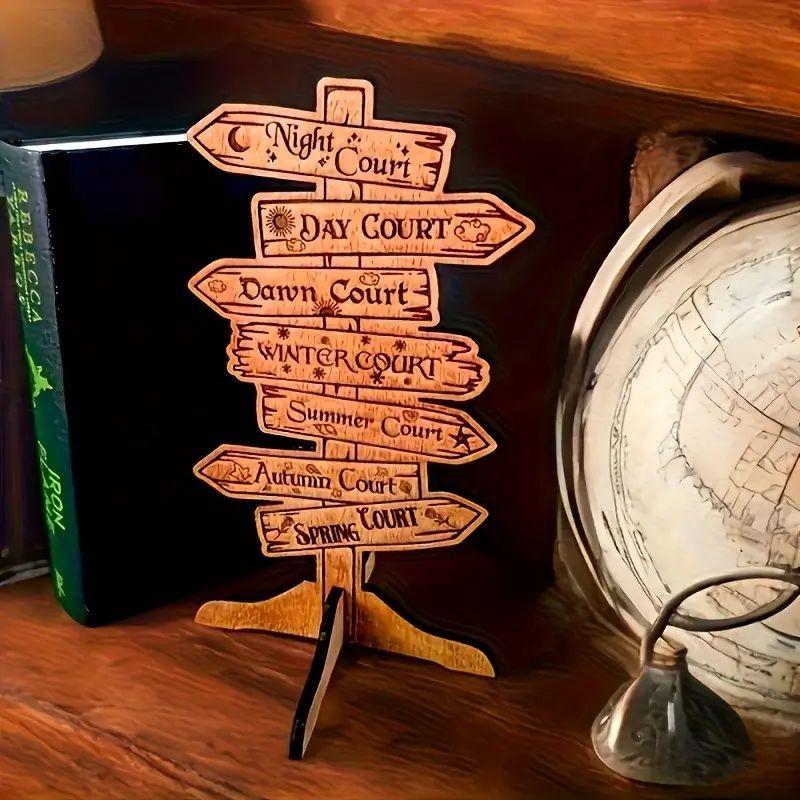 REBECCA
IRON
FLAME
Night
Court
DAY COURT
Dawn Court
WINTER COURT
Summer Court
Autumn Court
SPRING COURT